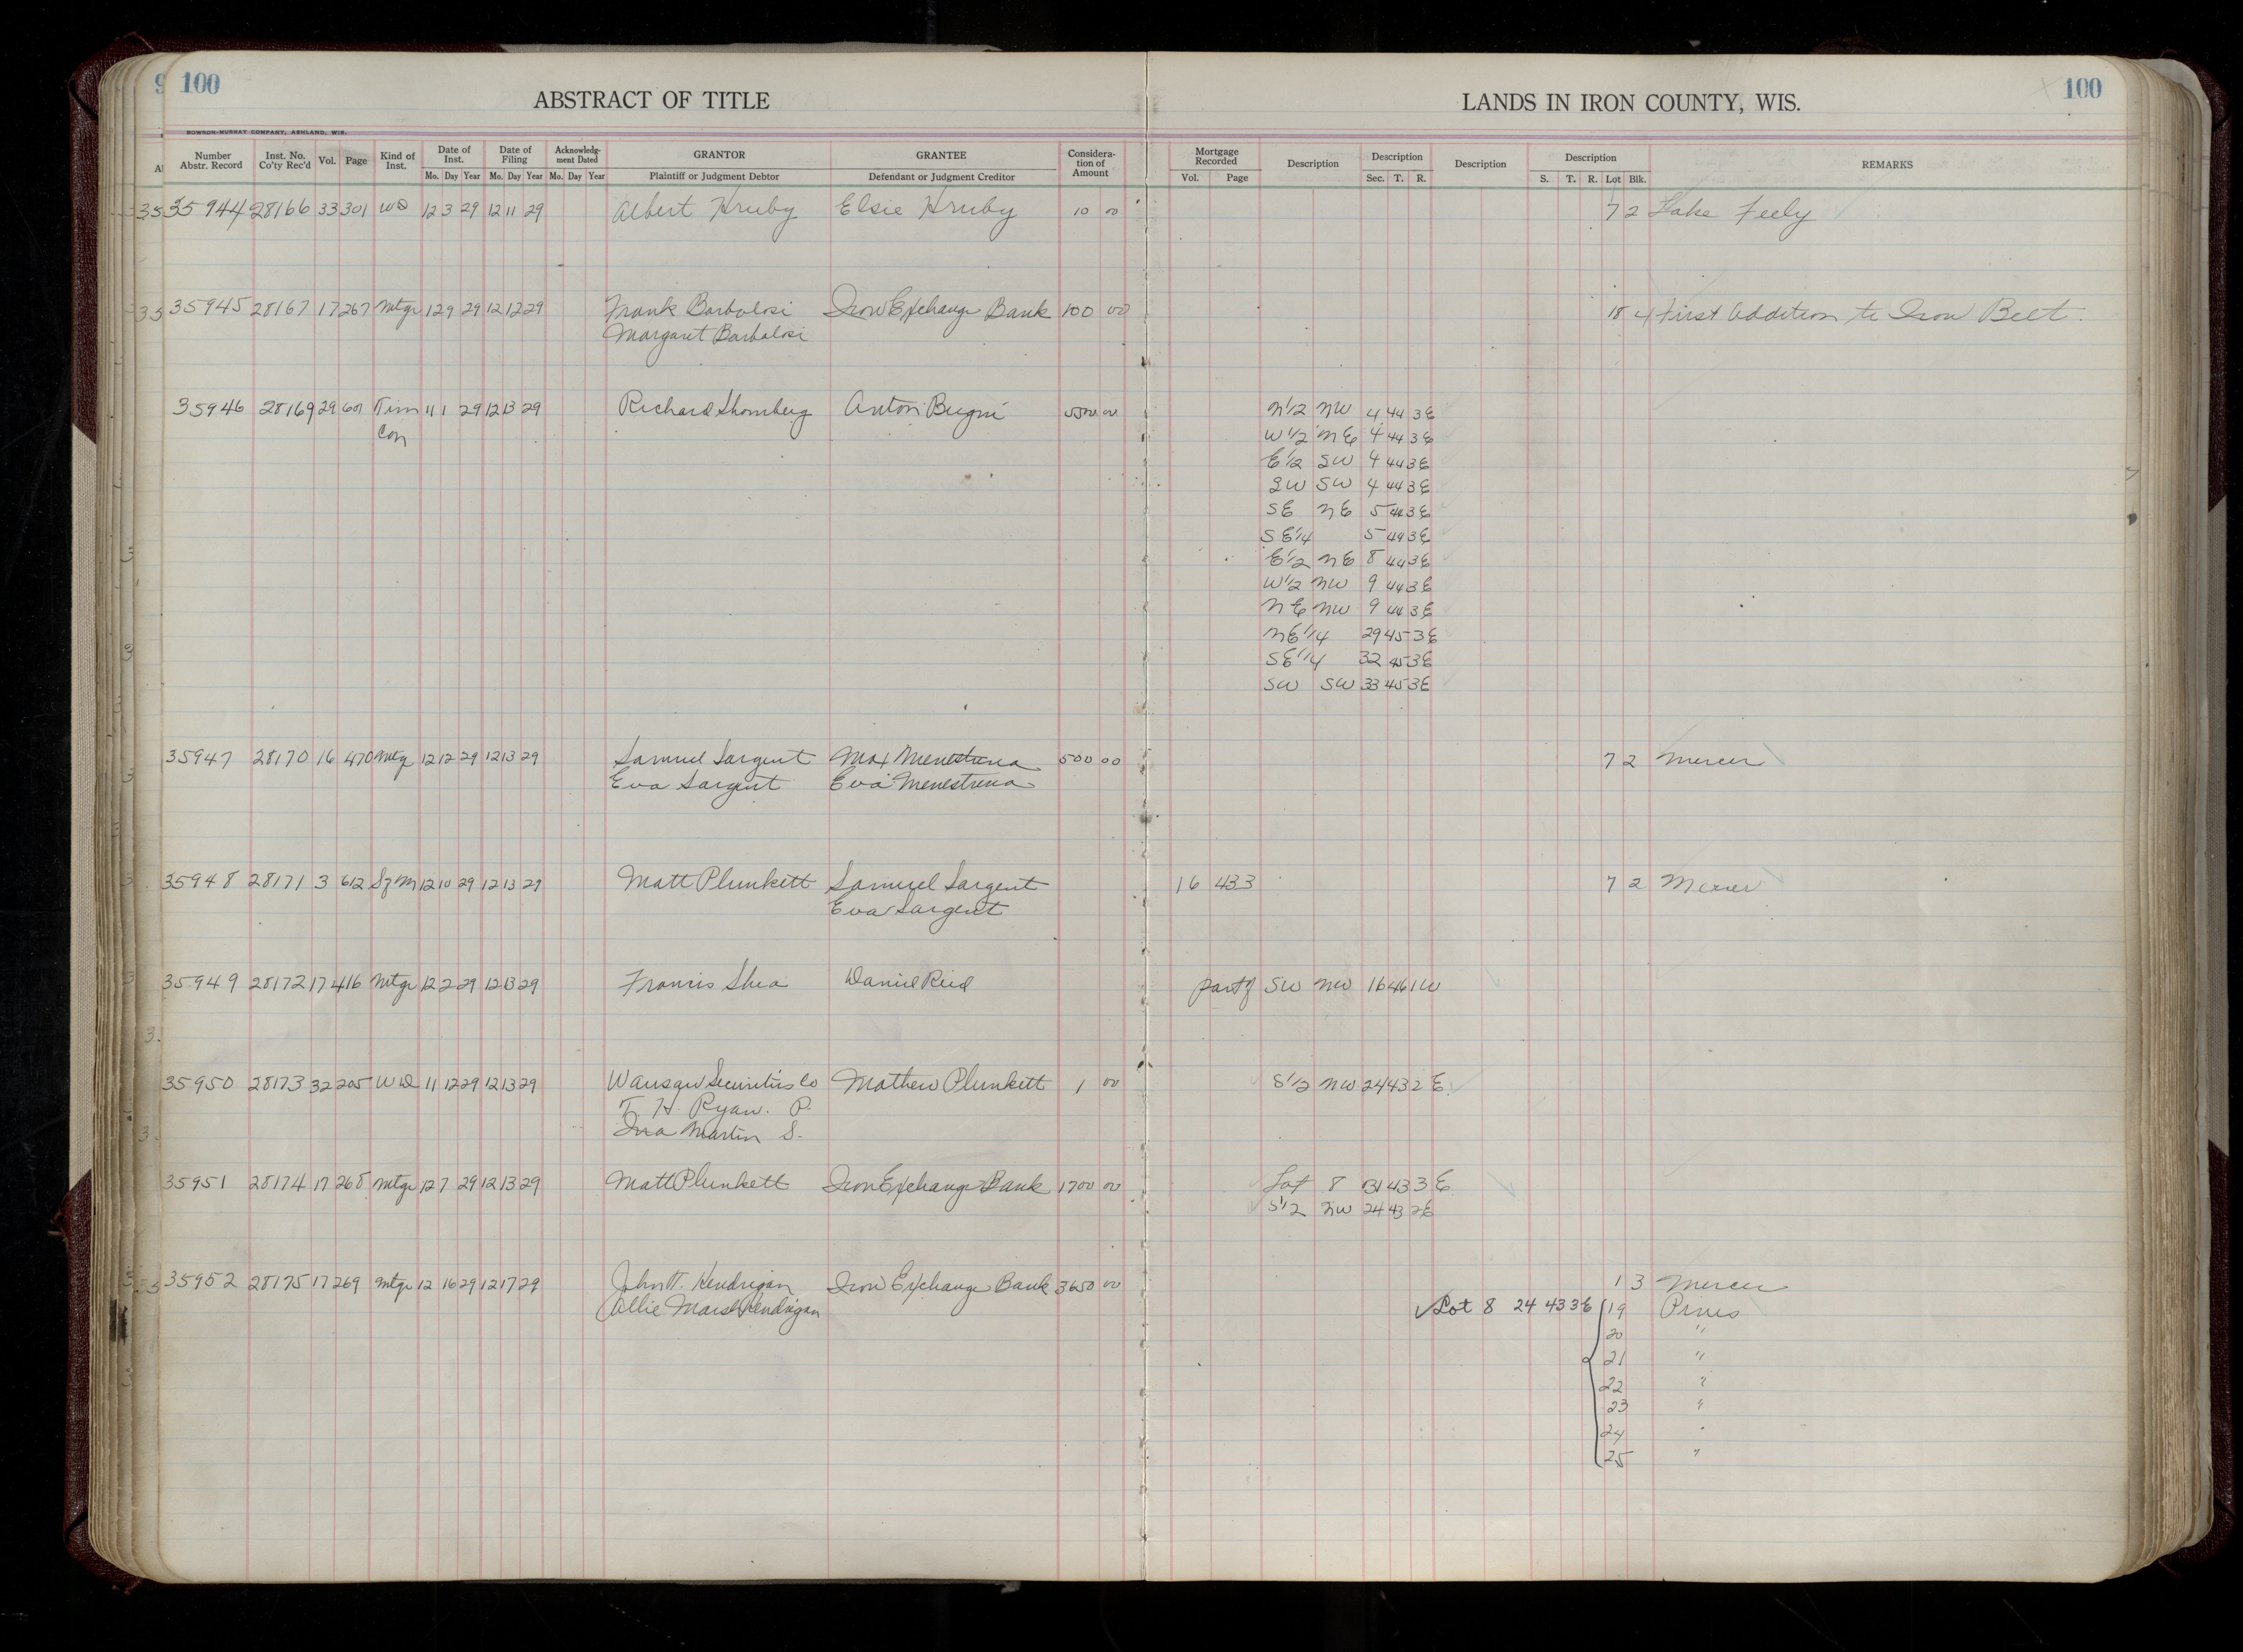 100
ABSTRACT OF TITLE
LANDS IN IRON COUNTY, WIS.
100
BOWRON-MURRAY COMPANY, ASHLAND, WIS.
Number Abstr. Record | Inst. No. Co'ty Rec'd | Vol. | Page | Kind of Inst. | Date of Inst. Mo. Day Year | Date of Filing Mo. Day Year | Acknowledgment Dated Mo. Day Year | GRANTOR Plaintiff or Judgment Debtor | GRANTEE Defendant or Judgment Creditor | Considera-tion of Amount | Mortgage Recorded Vol. Page | Description | Description Sec. T. R. | Description | Description S. T. R. Lot Blk. | REMARKS
35944 28166 33 301 WD 12 3 29 12 11 29 Albert Hruby Elsie Hruby 10 00 7 2 Lake Feely
35945 28167 17 267 Mtge 12 9 29 12 12 29 Frank Barbalosi Iron Exchange Bank 100 00 18 4 First Addition to Iron Belt.
Margaret Barbalosi
35946 28169 29 601 Tim 11 1 29 12 13 29 Richard Shomberg Anton Bugni 5500 00 N1/2 NW 4 44 3E
Con W1/2 NE 4 44 3E
E1/2 SW 4 44 3E
SW SW 4 44 3E
SE NE 5 44 3E
SE1/4 5 44 3E
E1/2 NE 8 44 3E
W1/2 NW 9 44 3E
NE NW 9 44 3E
NE1/4 29 45 3E
SE1/4 32 45 3E
SW SW 33 45 3E
35947 28170 16 470 Mtge 12 12 29 12 13 29 Samuel Sargent Max Menestrina 500 00 7 2 Mercer
Eva Sargent Eva Menestrina
35948 28171 3 612 Sz M 12 10 29 12 13 29 Matt Plunkett Samuel Sargent 16 433 7 2 Mercer
Eva Sargent
35949 28172 17 416 Mtge 12 2 29 12 13 29 Francis Shea Daniel Reid part of SW NW 16 46 1W
35950 28173 32 205 WD 11 12 29 12 13 29 Wausau Securities Co Mathew Plunkett 1 00 S1/2 NW 24 43 2 E.
T. H. Ryan. P.
Ina Martin S.
35951 28174 17 268 Mtge 12 7 29 12 13 29 Matt Plunkett Iron Exchange Bank 1700 00 Lot 8 31 43 3 E
S1/2 NW 24 43 2E
35952 28175 17 269 Mtge 12 16 29 12 17 29 John T. Hendrigan Iron Exchange Bank 3650 00 1 3 Mercer
Allie Marsh Hendrigan Lot 8 24 43 3E 19 Pines
20 "
21 "
22 "
23 "
24 "
25 "